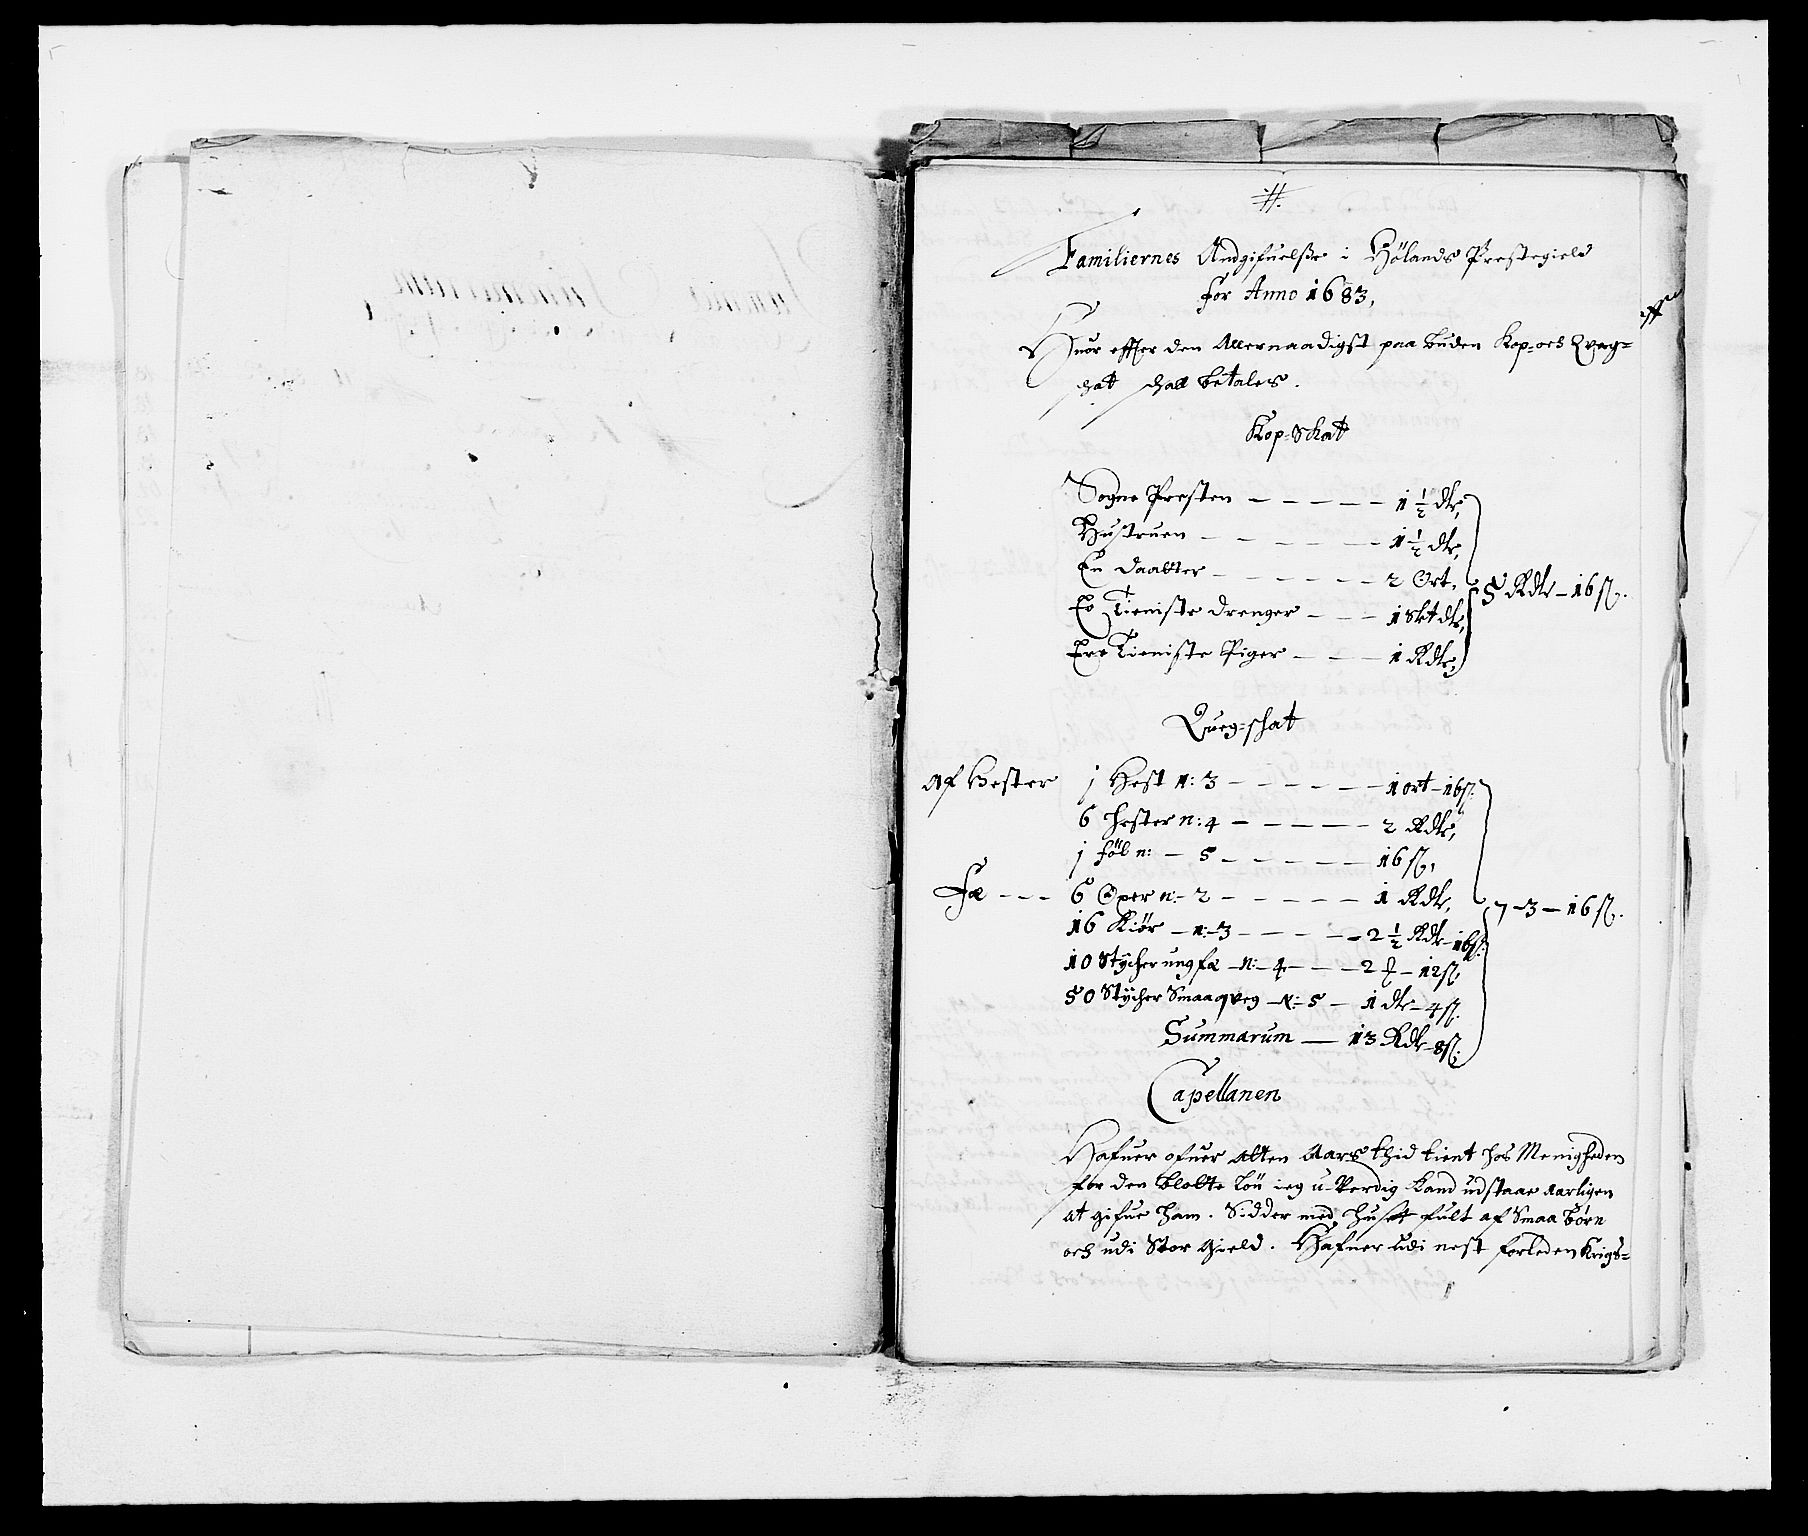 Familiernes Andgifuelse i Hölands Prestegield
for Anno 1683,
Huor effter den Allernaadigst paa buden Kop- och Qveg=
skat skall betales.
Kop=Skat
Sogne Presten — — — — — 1 1/2 dlr,
Hustruen — — — — — 1 1/2 dlr,
En daatter — — — — — 2 Ort,
To Tieniste drenger — — — 1 Skt dlr,
Tre Tieniste Piger — — — 1 Rdlr,
5 Rdlr — 16 ß.
Queg=skat
Af Hester j Hest n: 3 — — — — — 1 ort — 16 ß.
6 hester n: 4 — — — — — 2 Rdlr,
j föl n: — 5 — — — — — 16 ß,
Fæ — — — 6 Oxer n: — 2 — — — — — 1 Rdlr,
16 Kiör — n: — 3 — — — — 2 1/2 Rdlr — 16 ß.
10 Stycher ung fæ — N: — 4 — — — 2 — 12 ß
50 Stycher Smaaqveg — N: — 5 — 1 dlr — 4 ß.
7 — 3 — 16 ß.
Summarum — 13 Rdlr — 8 ß.
Capellanen
Hafuer ofuer Atten Aars thid tient hos Menigheden
for den blotte lön ieg u-Verdig Kand udstaae Aarligen
at gifue ham. Sidder med huset fult af Smaa börn
och udi Stor Gield. Hafuer udi nest forleden Krigs=